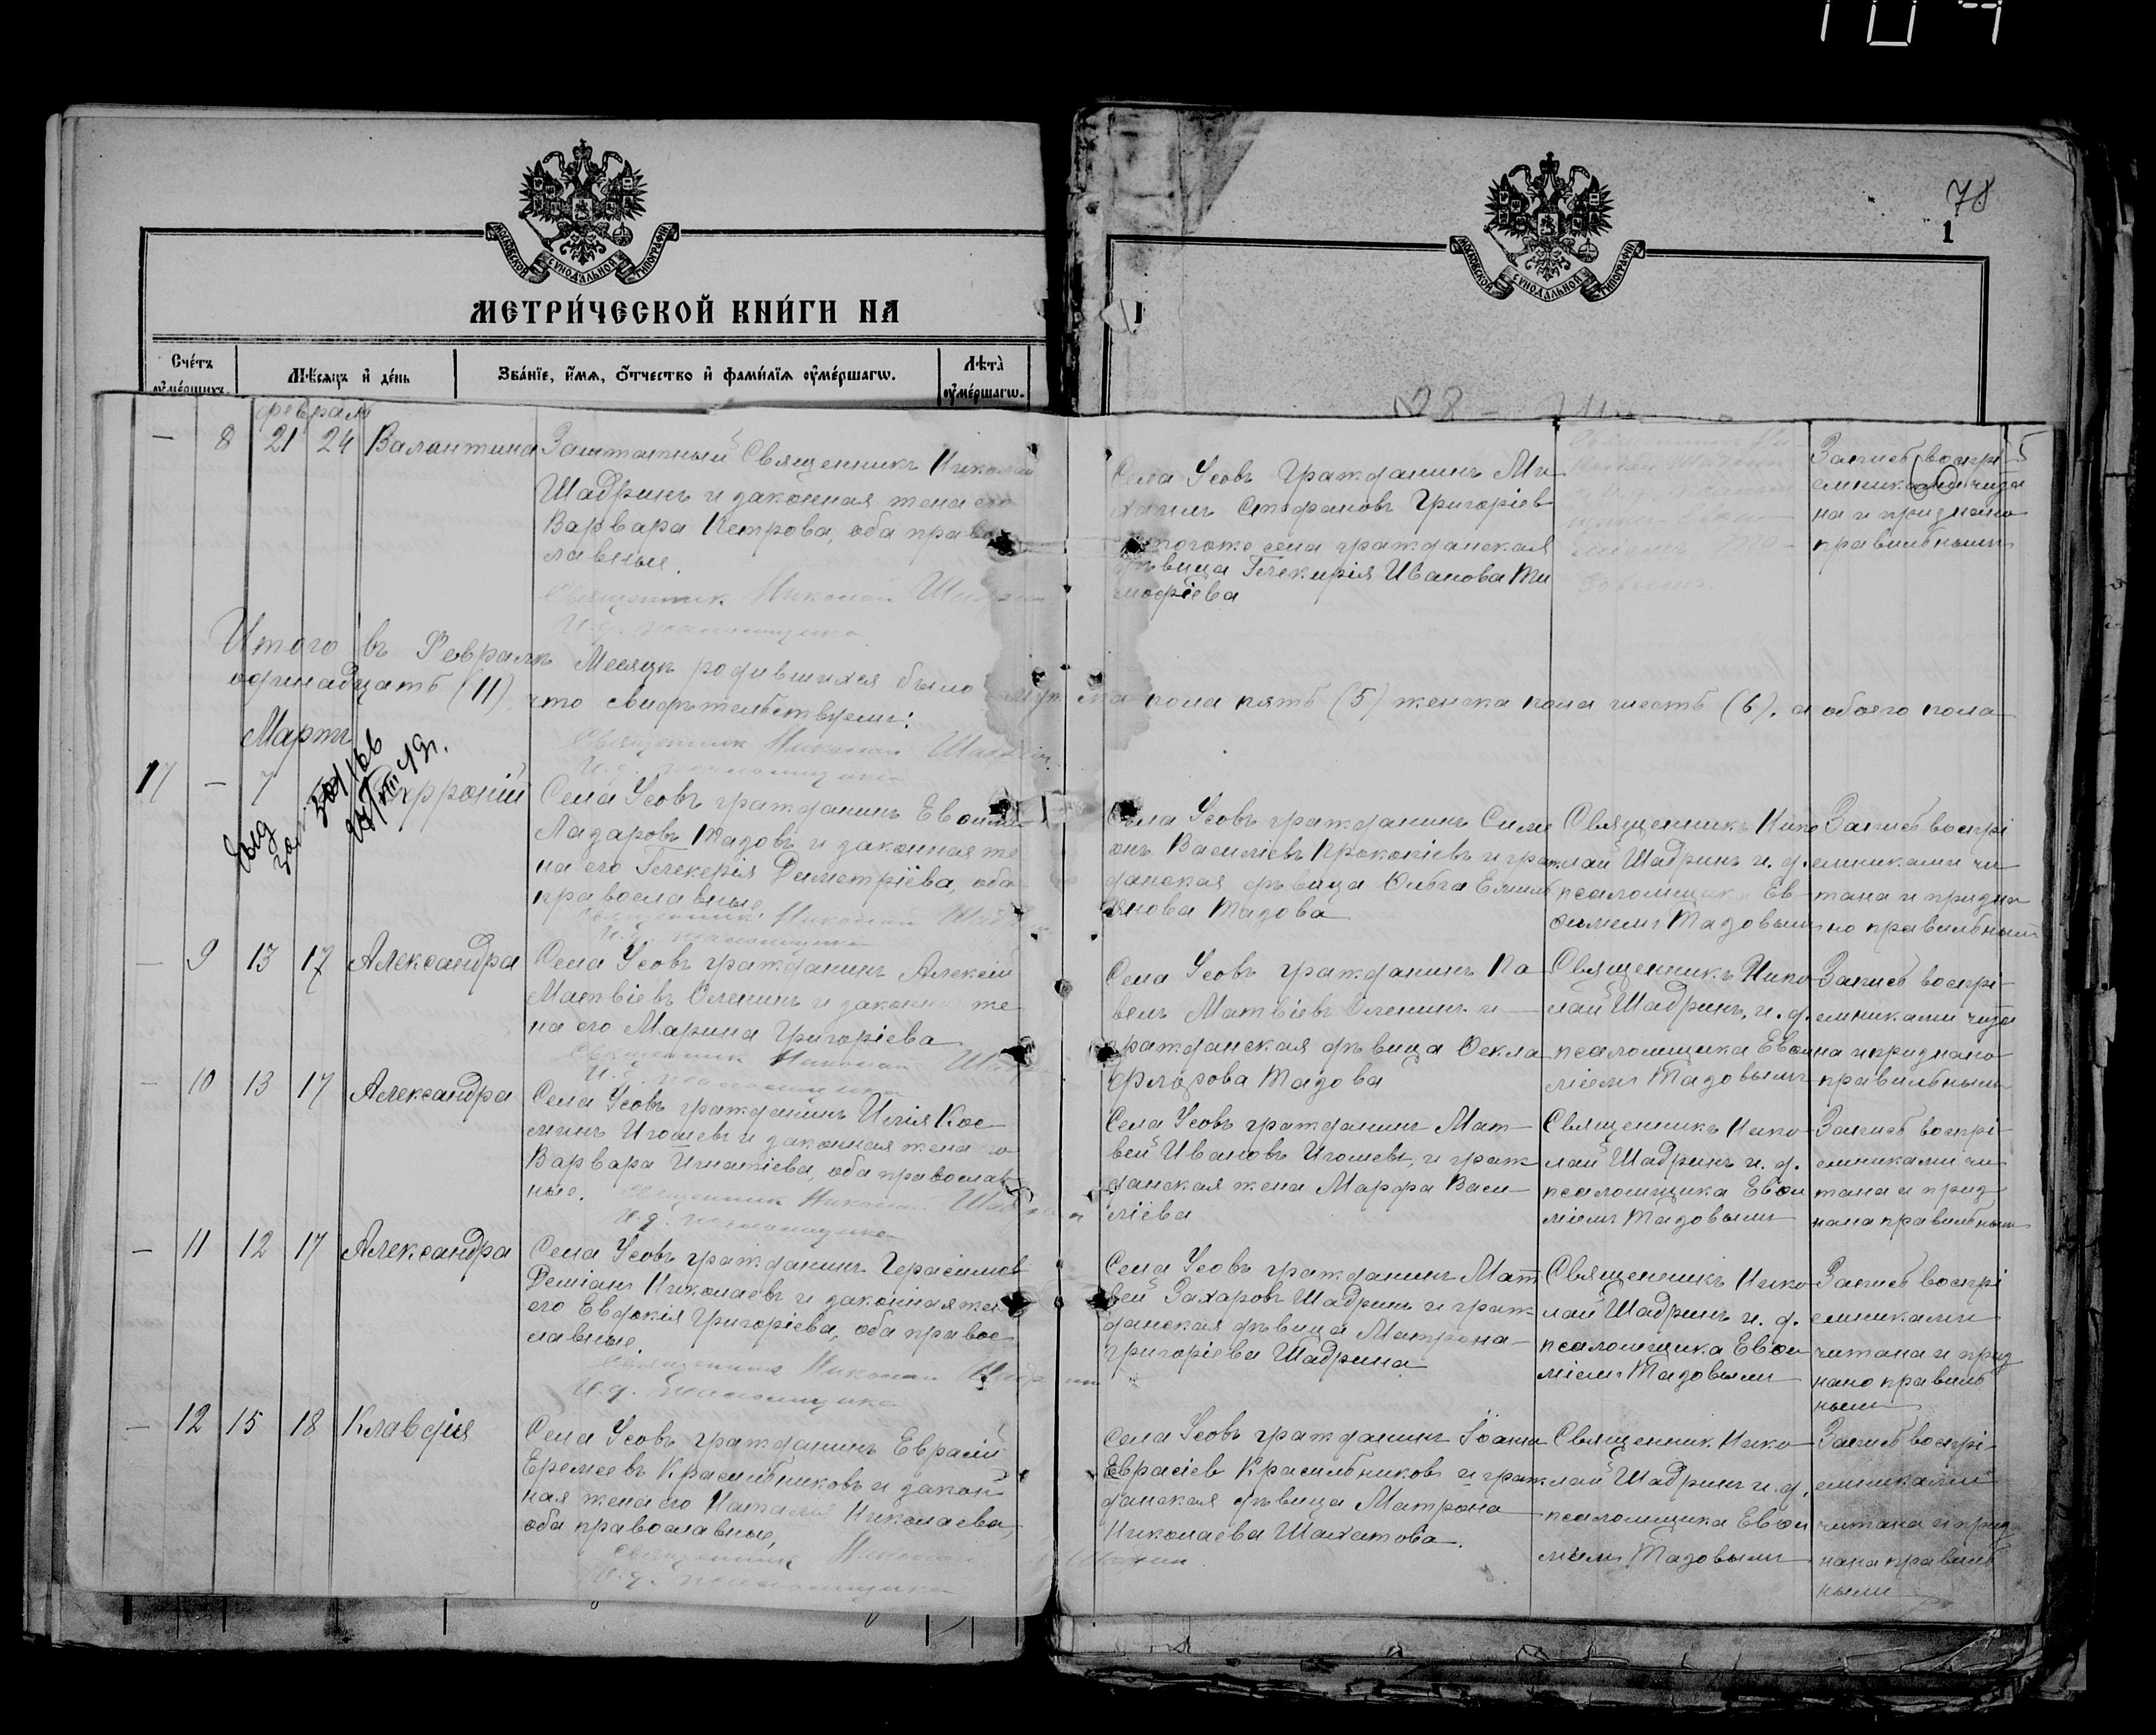 78
1
МОСКОВСКОЙ СѴНОДАЛЬНОЙ ТИПОГРАФІИ
МОСКОВСКОЙ СѴНОДАЛЬНОЙ ТИПОГРАФІИ
МЕТРИ́ЧЕСКОЙ КНИ́ГИ НА
Сче́тъ ᲂумершихъ.
Мѣсяцъ и де́нь
Зва́нїе, и́мя, ѻ́тчество и фами́лїя ᲂуме́ршагѡ.
Лѣта̀ ᲂуме́ршагѡ.
февраль
— 8 21 24 Валантина
Заштатный Священникъ Николай
Шадринъ и законная жена его
Варвара Петрова, оба право
лавные.
Священник Николай
И. д. псаломщика
Села Усовъ Гражданинъ Ми
хаилъ Стефановъ Григоріев
тогоже села гражданская
дѣвица Гликирія Иванова Ти
мофіева
Запись воспрі
емниками чита
на и признано
правильными
5
Итого въ Февралѣ Месяцѣ родившихся было мужска пола пять (5) женска пола шесть (6). а обоего пола
одинадцать (11) что свидѣтельствуемъ:
Священник Николай
И. д. псаломщика
Мартъ
17 — 7
Села Усовъ гражданинъ Евоимій
Лазаровъ Тадовъ и законная же
на его Гликерія Диметріева, оба
православные.
Священник Николай
И. д. псаломщика
Села Усовъ гражданинъ Симе
онъ Василіевъ Прокопіевъ и граж
данская дѣвица Ольга Емилі
янова Тадова
Священникъ Нико
лай Шадринъ и. д.
псаломщика Ев
оиміемъ Тадовымъ
Запись воспрі
емниками чи
тана и призна
но правильными
— 9 13 17 Александра
Села Усовъ гражданинъ Алексій
Матвіевъ Оленинъ и законная же
на его Марина Григоріева
Священник Николай
И. д. псаломщика
Села Усовъ гражданинъ Па
велъ Матвіевъ Оленинъ и
гражданская дѣвица Оекла
Флорова Тадова
Священникъ Нико
лай Шадринъ, и. д.
псаломщика Евои
міемъ Тадовымъ
Запись воспрі
емниками чита
на и признано
правильными
— 10 13 17 Александра
Села Усовъ гражданинъ Илія Кос
минъ Игошевъ и законная жена его
Варвара Игнатіева, оба православ
ные.
Священник Николай
И. д. псаломщика
Села Усовъ гражданинъ Мат
вей Ивановъ Игошевъ, и граж
данская жена Марфа Васи
ліева
Священникъ Нико
лай Шадринъ и. д.
псаломщика Евои
міемъ Тадовымъ
Запись воспрі
емниками чи
тана и приз
нана правильными
— 11 12 17 Александра
Села Усовъ гражданинъ Герасимов
Деміанъ Николаевъ и законная жена
его Евдокія Григоріева, оба правос
лавные.
Священник Николай
И. д. псаломщика
Села Усовъ гражданинъ Мат
вей Захаровъ Шадринъ и граж
данская дѣвица Матрона
Григоріева Шадрина
Священникъ Нико
лай Шадринъ и. д.
псаломщика Евои
міемъ Тадовымъ
Запись воспрі
емниками
читана и приз
нано правиль
ными
— 12 15 18 Клавдія
Села Усовъ гражданинъ Еврасій
Еремеевъ Красильниковъ и закон
ная жена его Наталія Николаева,
оба православные,
Священник Николай
И. д. псаломщика
Села Усовъ гражданинъ Іоаннъ
Еврасіев Красильниковъ и граж
данская дѣвица Матрона
Николаева Шахатова.
Священник Нико
лай Шадринъ и. д.
псаломщика Евои
міемъ Тадовымъ
Запись воспрі
емниками
читана и приз
нана правиль
ными